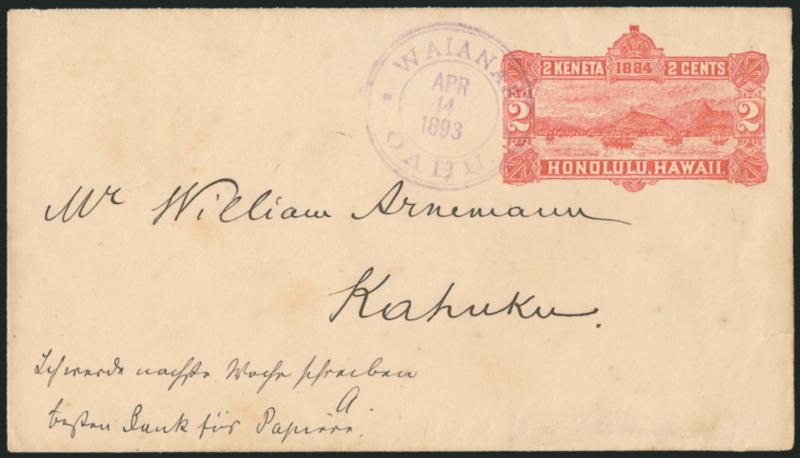 WAIANAE
APR
14
1893
OAHU.
2 KENETA 1884 2 CENTS
2 2
HONOLULU, HAWAII.
Mr William Arnemann
Kahuku.
Ich werde nachste Woche schreiben
besten Dank für Papiere.
A